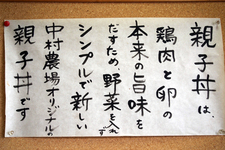 親子丼は、
鶏肉と卵の
本来の旨味を
だすため、野菜を入れず
シンプルで新しい
中村農場オリジナルの
親子丼です